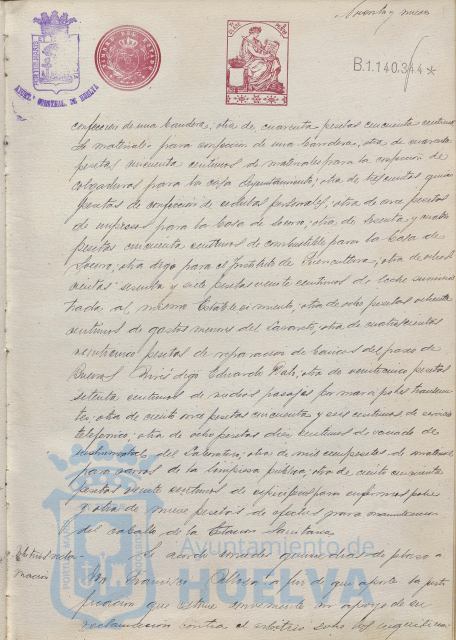 Noventa y nueve
B.1.140.344*
AYUNT. GENERAL. DE HUELVA
confección de una bandera; otra de cuarenta pesetas cincuenta centimos
de materiales para confección de una bandera, otra de
pesetas cincuenta centimos de materiales para la confección de
colgaduras para la casa Ayuntamiento; otra de trescientas quince
pesetas de confección de cedulas personales; otra de once pesetas
de impresos para la Casa de Socorro; otra de sesenta y cuatro
pesetas cincuenta centimos de combustible para la Casa de
Socorro; otra digo para el Instituto de Puericultura; otra de
cientas sesenta y siete pesetas veinte centimos de leche suminis-
trada al mismo Establecimiento, otra de ocho pesetas ochenta
centimos de gastos menores del Lazareto, otra de cuatrocientas
veinticinco pesetas de reparación de bancos del paseo de
Buenos digo Eduardo Dato; otra de veinticinco pesetas
setenta centimos de medios pasajes por mar a pobres transeun-
tes; otra de ciento once pesetas cincuenta y seis centimos de servicio
telefonico; otra de ocho pesetas diez centimos de
instrumental del Laboratorio, otra de mil cien pesetas de
para carros de la limpieza publica; otra de ciento cincuenta
pesetas veinte centimos de especificos para enfermos pobres
y otra de nueve pesetas de efectos para
del caballo de la Estación Sanitaria.
Se acordó conceder quince dias de plazo a
Don Francisco a fin de que aporte la justi-
ficación que estime conveniente en apoyo de su
reclamación contra el arbitrio sobre los
Ayuntamiento de
HUELVA